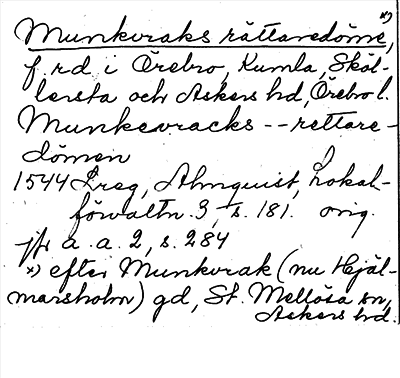 *)
Munkvraks rättaredöme,
f. rd i Örebro, Kumla, Sköl-
lersta och Askers hd, Örebro l.
Munkevracks -- rettare-
dömen
1544 Lreg, Almquist, Lokal-
förvaltn. 3, s. 181. orig.
jfr a. a. 2, s. 284
*) efter Munkvrak (nu Hjäl-
marsholm) gd, St. Mellösa sn,
Askers hd.